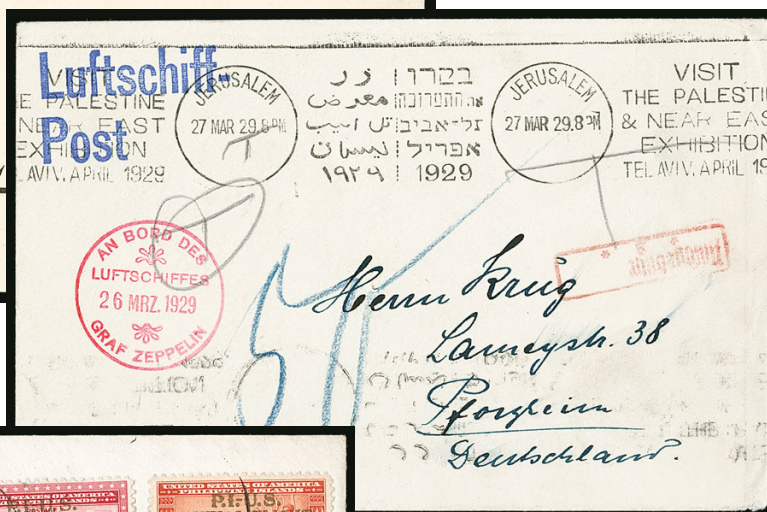 Luftschiff-
Post
VISIT
THE PALESTINE
NEAR EAST
EXHIBITION
AVIV. APRIL 1929
JERUSALEM
27 MAR 29.8 PM
זر
معرض
تل ابيب
نيسان
١٩٢٩
בקרו
את התערוכה
תל־אביב
אפריל
1929
JERUSALEM
27 MAR 29.8 PM
VISIT
THE PALESTI
& NEAR EAS
EXHIBITION
TEL AVIV. APRIL 19
AN BORD DES
LUFTSCHIFFES
26 MRZ. 1929
GRAF ZEPPELIN
Herrn Krug
Lameystr. 38
Pforzheim
Deutschland.
UNITED STATES OF AMERICA
P.I.U.S.
UNITED STATES OF AMERICA
PHILIPPINE ISLANDS
P.I.U.S.